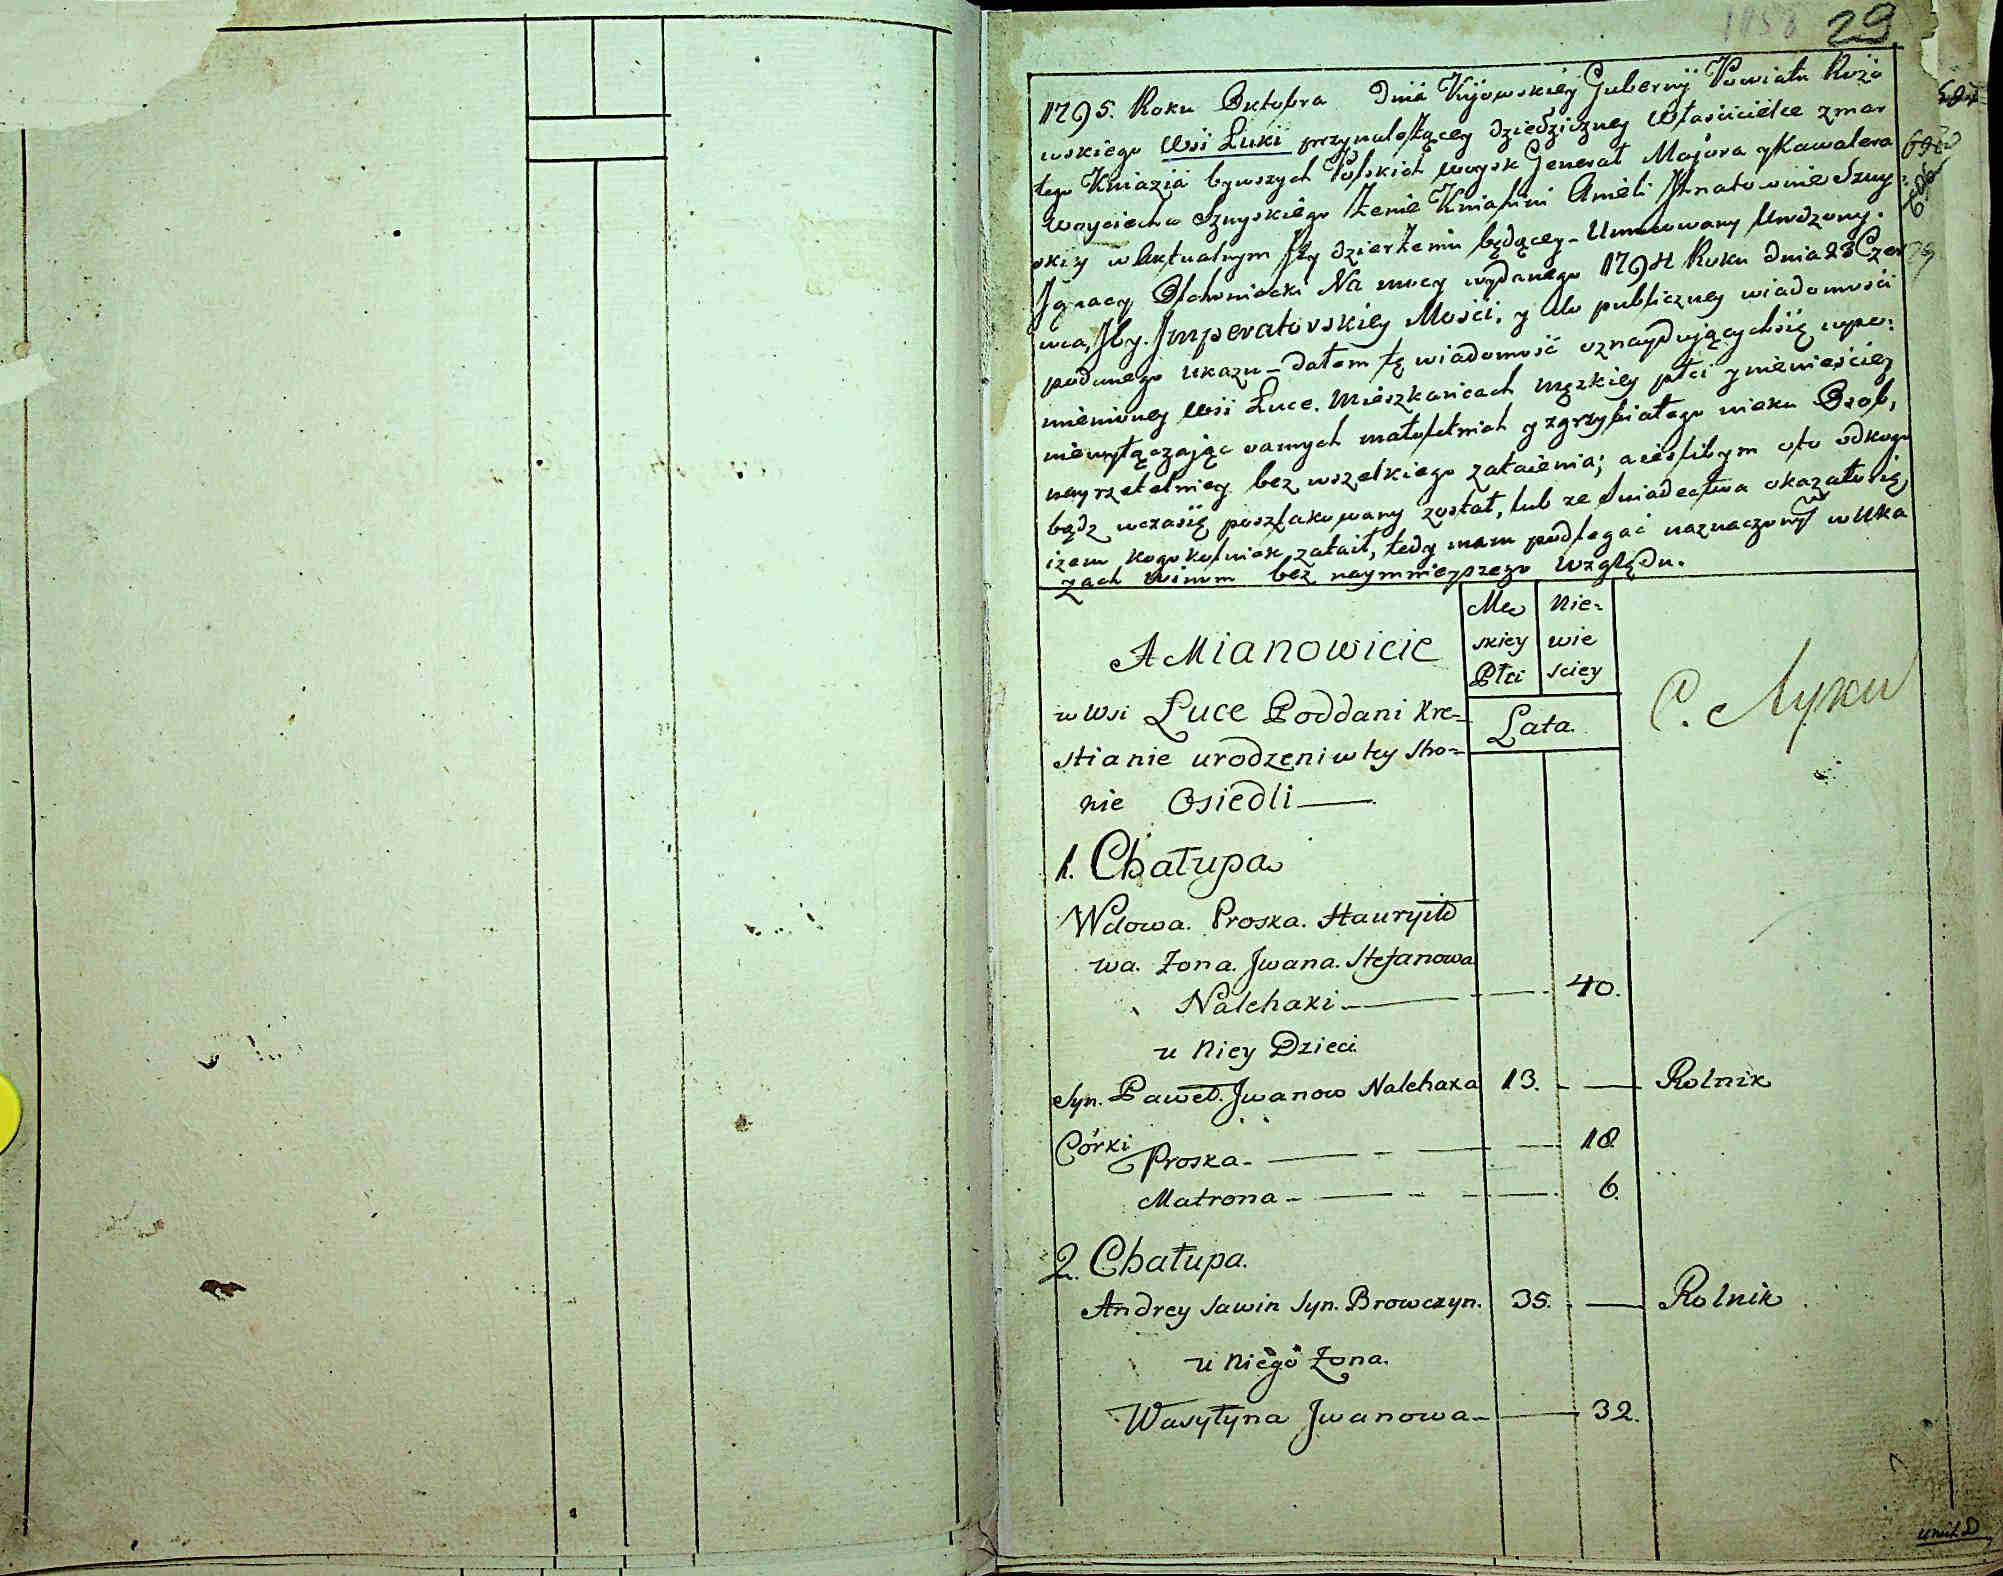 1858 29
1795. Roku Oktobra Dnia Kijowskiey Gubernÿ Powiatu Rużo
wskiego Wsi Łuki przynależącey dziedziczney Właścicielce zmar
łego Kniazia bywszych Polskich woysk Generał Majora y Kawalera
Woyciecha
żenie Kniahini Anieli
w Aktualnym Jey dzierżeniu będącey - Umocowany Urodzony.
Jgnacy Na mocy wydanego 1794 Roku Dnia 23 Czer
wca, Jey. Jmperatorskiey Mości, y do publiczney wiadomości
podanego ukazu - dałem tę wiadomość o znayduiących się wpo:
mienioney Wsi Łuce. Mieszkańcach męzkiey płci y niewieściey
niewyłączaiąc samych małoletnich y zgrzybiałego wieku Osob,
nayrzetelniey bez wszelkiego zataienia; a ieślibym oto od kogo
bądz wczasię poszlakowany został, lub ze świadectwa okazało się,
iżem kogokolwiek zataił, tedy mam podlegać naznaczonym w Uka
zach winom bez naymnieyszego względu.
A Mianowicie
Mę
skiey
Płci
Nie-
wie
sciey
w Wsi Łuce Poddani Kre-
stianie urodzeni w tey Stro-
nie Osiedli
Lata.
С. Луки
1. Chałupa
Wdowa. Proska. Hauryło
wa. Żona. Jwana. Stefanowa
Nalehaki 40.
u Niey Dzieci
Syn. Paweł. Jwanow Nalehaka 13. Rolnik
Córki Proska - 18
Matrona - 6.
2. Chałupa.
Andrey Sawin Syn. Browczyn. 35. Rolnik
u Niego Żona.
Wasyłyna Jwanowa - 32.